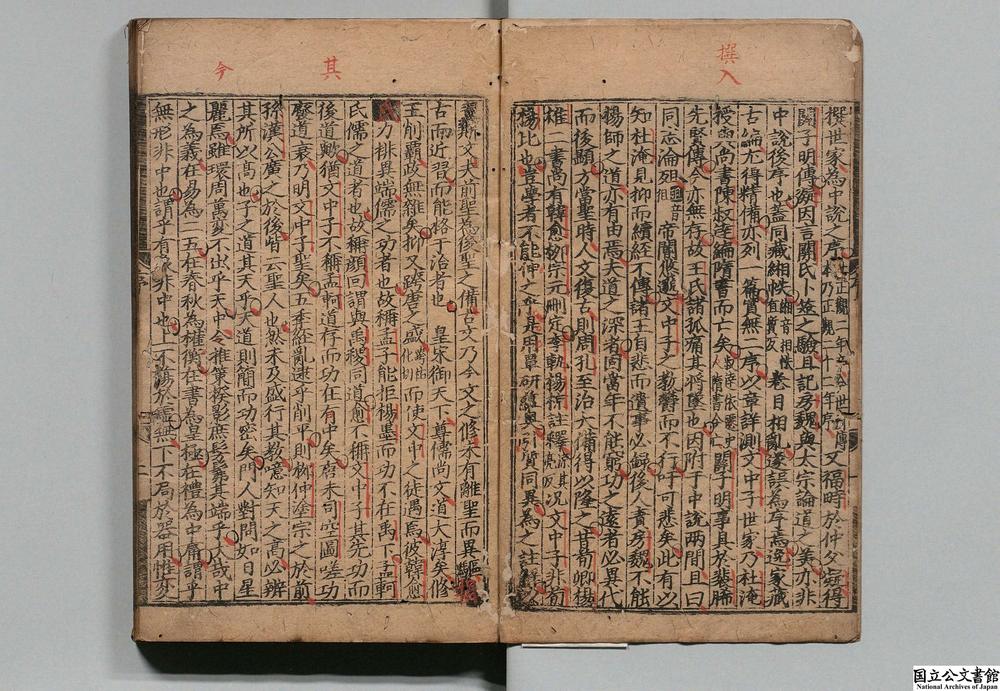 撰入
撰世家為中說之序又福畤於仲父凝得
關子明傳凝因言關氏卜筮之驗且記房魏與太宗論道之美亦非
中說後序也蓋同藏緗帙緗音相帙直質反卷目相亂遂誤為序焉逸家藏
古編尤得精備亦列十篇實無二序以章詳測文中子世家乃杜淹
授與尚書陳叔達編隋書而亡矣關子明事具於裴晞
先賢傳今亦無存故王氏諸孤痛其將墜也因附于中說兩間且曰
同志淪殂帝閽悠邈文中子之教鬱而不行吁可悲矣此有以
知杜淹見抑而續經不傳諸王自悲而遺事必錄後人責房魏不能
揚師之道亦有由焉夫道之深者固當年不能窮功之遠者必異代
而後顯方當聖時人文復古則周孔至治大備得以隆之昔荀卿揚
雄二書尚有韓愈柳宗元刪定李軌楊倞註釋况文中子非荀
揚比也豈學者不能伸之乎是用覃研蘊奧引質同異為之註解以
其
今
翼斯文夫前聖為後聖之備古文乃今文之修未有離聖而異驅捐
古而近習而能格于治者也 皇宋御天下尊儒尚文道大淳矣修
王削霸政無雜矣抑又跨唐之盛而使文中之徒遇焉彼韓愈
氏力排異端儒之功者也故稱孟子能拒楊墨而功不在禹下孟軻
氏儒之道者也故稱顏回謂與禹稷同道愈不稱文中子其先功而
後道歟猶文中子不稱孟軻道存而功在有中矣唐末司空圖嗟功
廢道衰乃明文中子聖矣五季經亂逮乎削平則柳仲塗宗之於前
孫漢公廣之於後皆云聖人也然未及盛行其教噫知天之高必辨
其所以高也子之道其天乎天道則簡而功密矣門人對問如日星
麗焉雖環周萬變不出乎天中今推策揆影庶髣髴其端乎大哉中
之為義在易為二五在春秋為權衡在書為皇極在禮為中庸謂乎
無形非中也謂乎有象非中也上不蕩於虛無下不局於器用惟變
国立公文書館
National Archives of Japan